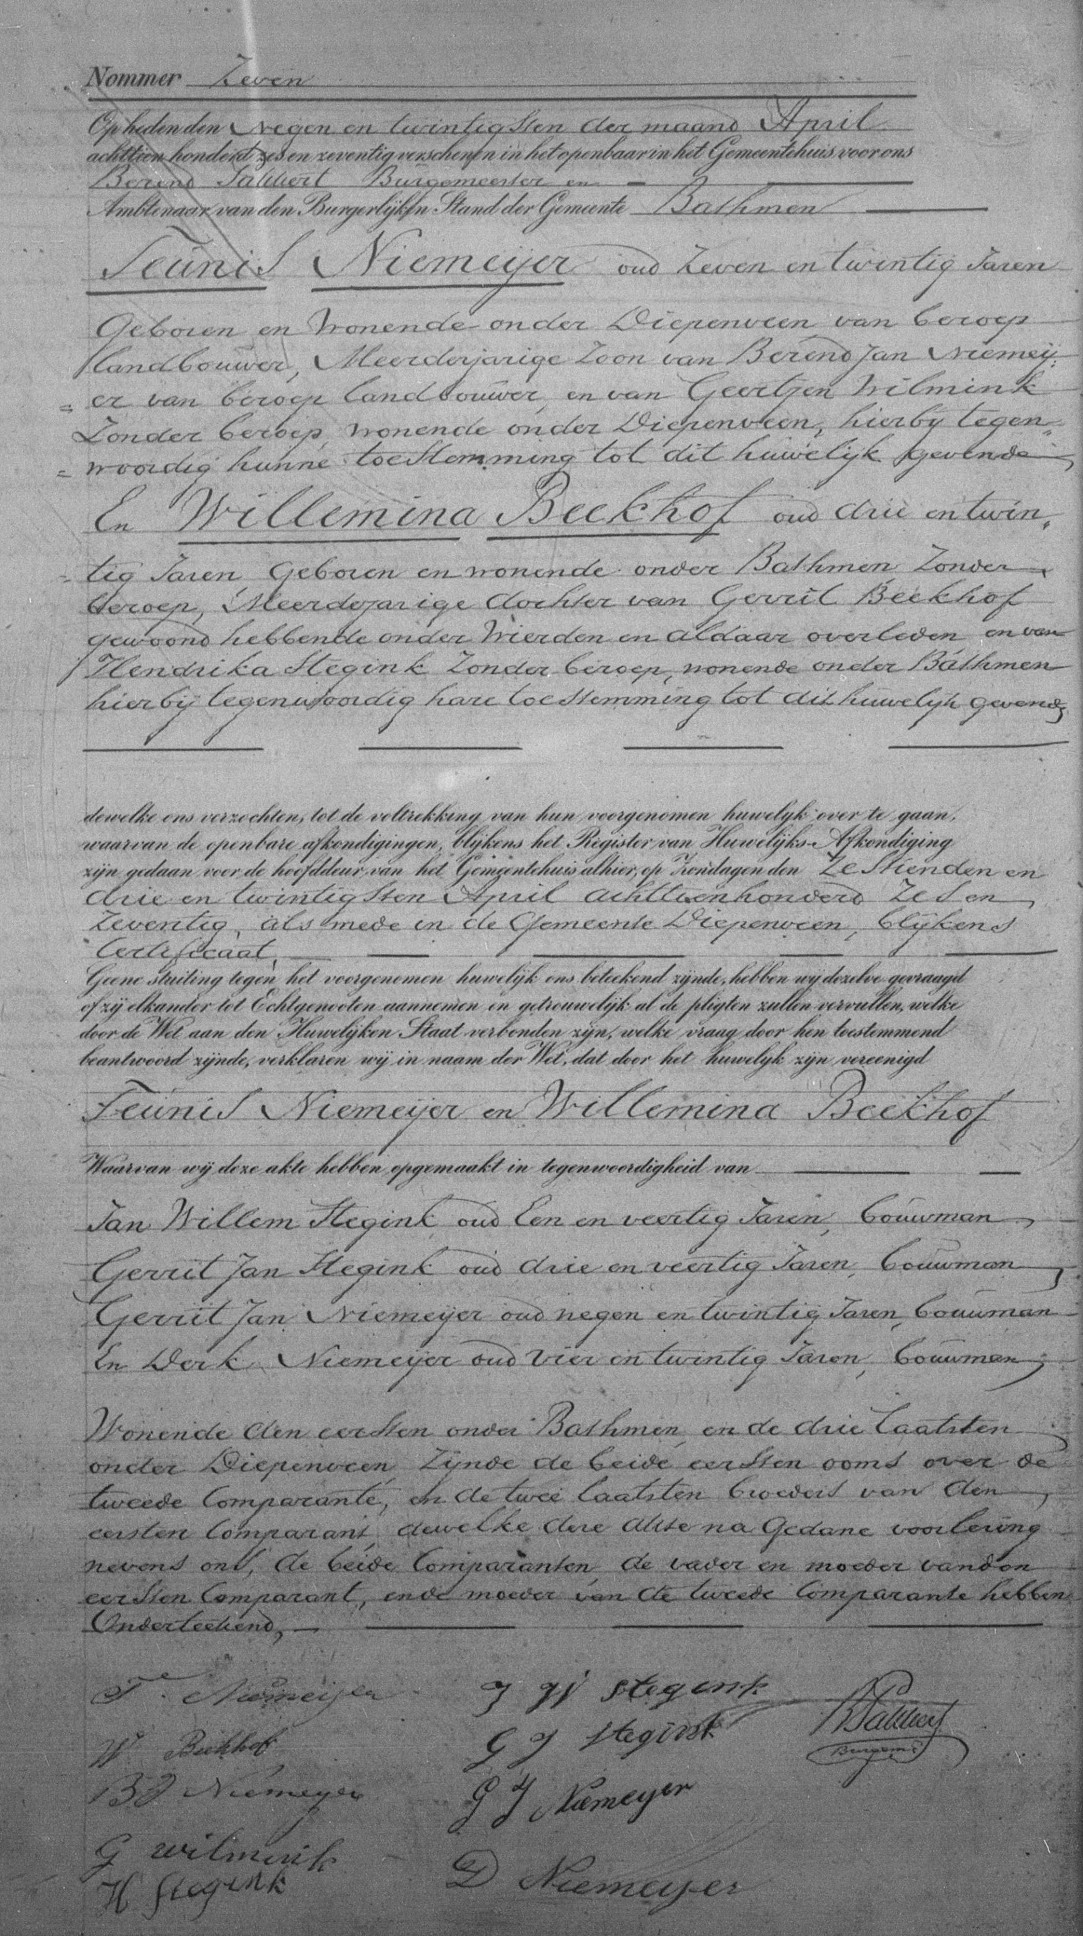 Nommer Zeven
Op heden den Negen en twintigsten der maand April
achttien honderd zes en zeventig verschenen in het openbaar in het Gemeentehuis voor ons
Berend Burgemeester en
Ambtenaar van den Burgerlijken Stand der Gemeente Bathmen
Teunis Niemeijer oud Zeven en twintig Jaren
Geboren en Wonende onder Diepenveen van beroep
landbouwer, Meerderjarige Zoon van Berend Jan Niemeij=
= er van beroep landbouwer, en van Geertjen Wilmink
Zonder beroep, wonende onder Diepenveen, hierbij tegen=
= woordig hunne toestemming tot dit huwelijk gevende,
En Willemina Beekhof oud drie en twin=
= tig Jaren Geboren en wonende onder Bathmen Zonder
beroep, Meerderjarige dochter van Gerrit Beekhof
gewoond hebbende onder Wierden en aldaar overleden en van
Hendrika Stegink Zonder beroep, wonende onder Bathmen
hierbij tegenwoordig hare toestemming tot dit huwelijk gevende,
dewelke ons verzochten, tot de voltrekking van hun voorgenomen huwelijk over te gaan,
waarvan de openbare afkondigingen, blijkens het Register van Huwelijks-Afkondiging
zijn gedaan voor de hoofddeur van het Gemeentehuis alhier, op Zondagen den Zestienden en
drie en twintigsten April achttienhonderd Zes en
Zeventig, als mede in de Gemeente Diepenveen, blijkens
Certificaat,
Geene stuiting tegen het voorgenomen huwelijk ons beteekend zijnde, hebben wij dezelve gevraagd
of zij elkander tot Echtgenooten aannemen en getrouwelijk al de pligten zullen vervullen, welke
door de Wet aan den Huwelijken Staat verbonden zijn, welke vraag door hen toestemmend
beantwoord zijnde, verklaren wij in naam der Wet, dat door het huwelijk zijn vereenigd
Teunis Niemeijer en Willemina Beekhof
Waarvan wij deze akte hebben opgemaakt in tegenwoordigheid van
Jan Willem Stegink oud Een en veertig Jaren, bouwman,
Gerrit Jan Stegink oud drie en veertig Jaren, bouwman,
Gerrit Jan Niemeijer oud negen en twintig Jaren, bouwman
En Derk Niemeijer oud Vier en twintig Jaren, bouwman,
Wonende den eersten onder Bathmen, en de drie laatsten
onder Diepenveen, Zijnde de beide eersten ooms over de
tweede Comparante, en de twee laatsten broeders van den
eersten Comparant, dewelke deze akte na Gedane voorlezing
nevens ons, de beide Comparanten, de vader en moeder van den
eersten Comparant, en de moeder van de tweede Comparante hebben
Onderteekend,
T. Niemeijer J W Stegink
W Beekhof G J Stegink
Burgemr
B J Niemeyer G J Niemeyer
G Wilmink
D Niemeijer
H Stegink